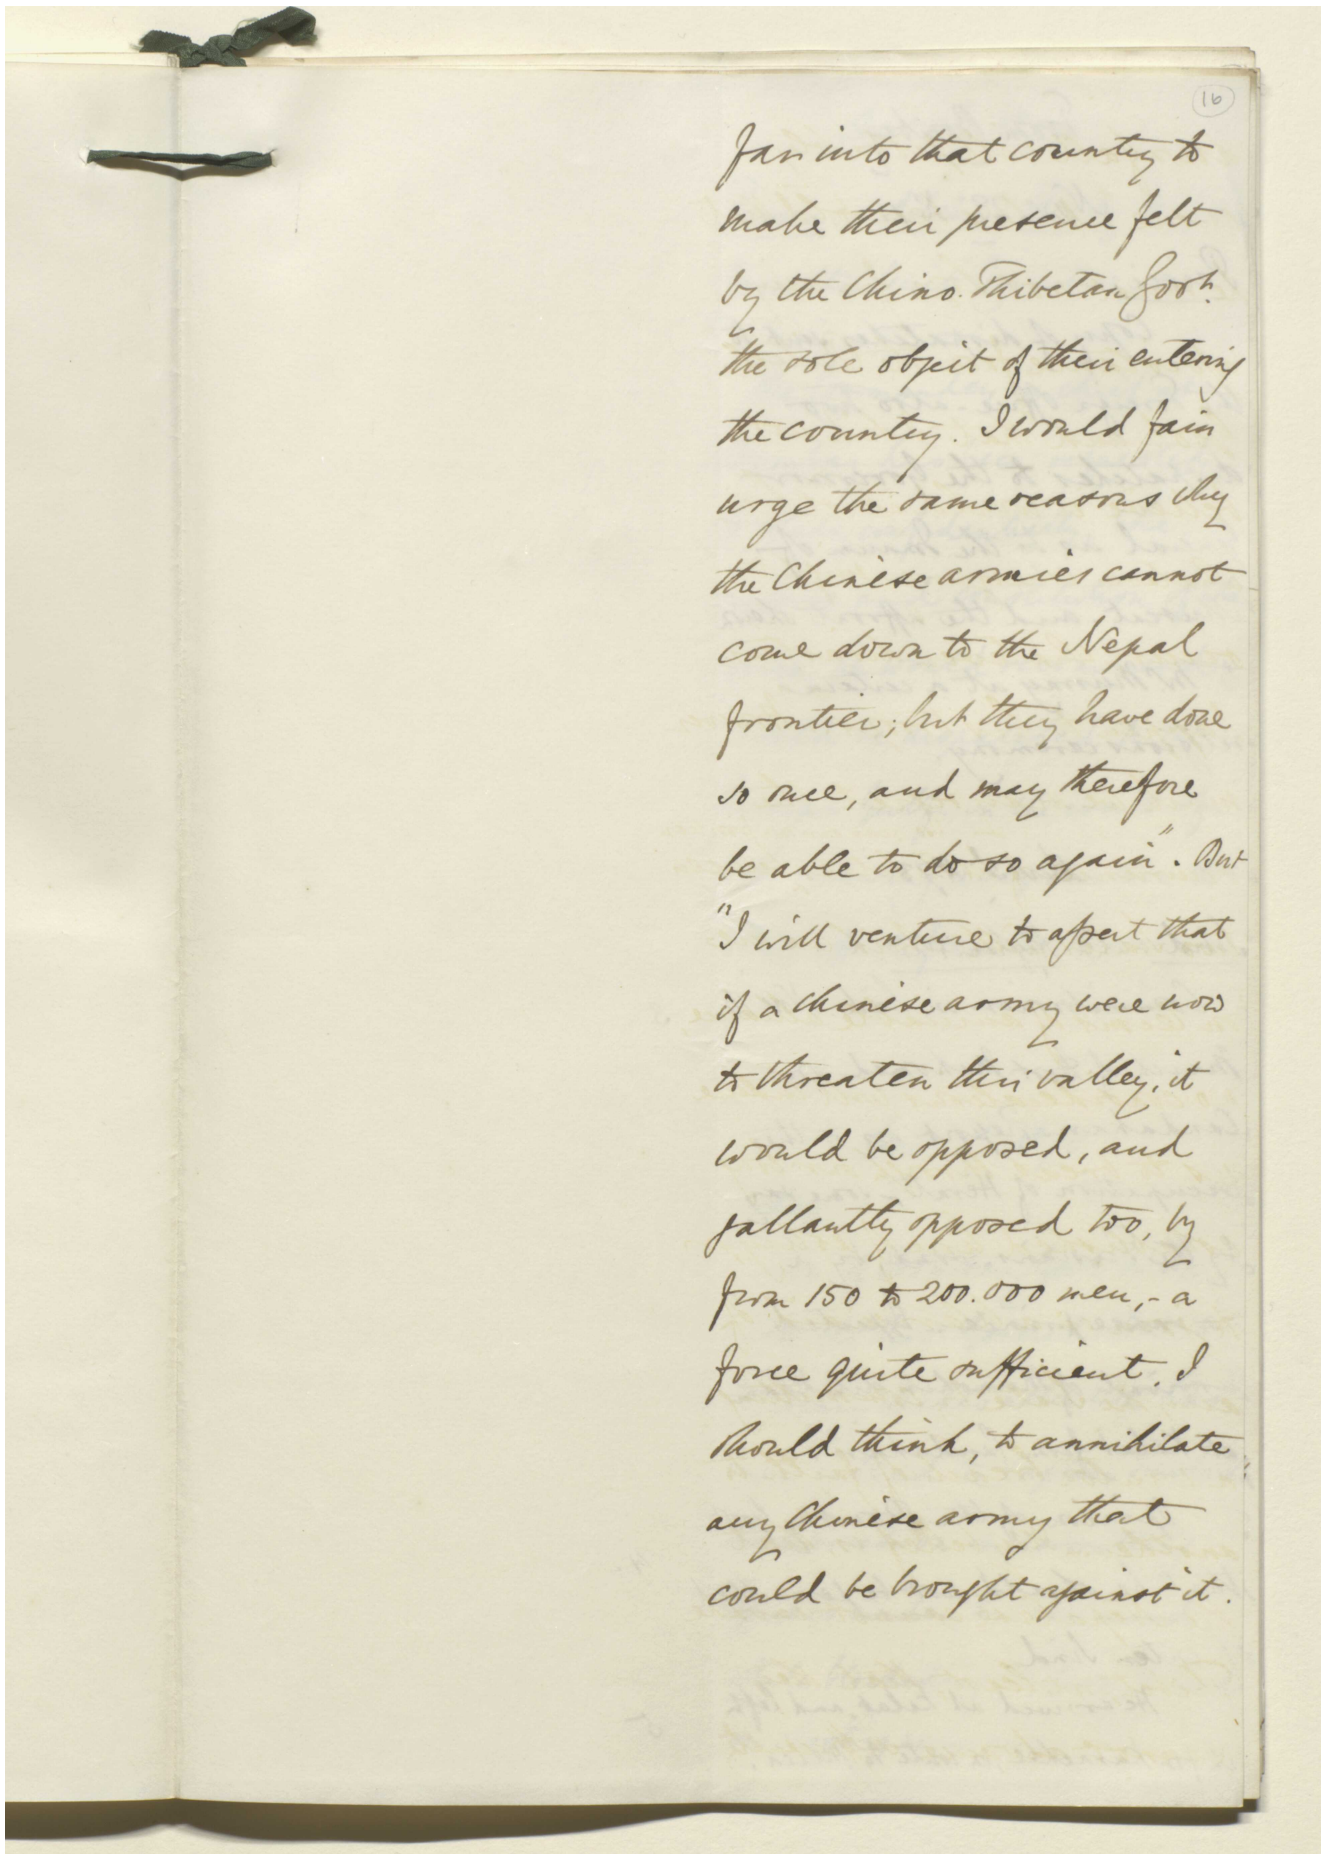 16
far into that country to
make their presence felt
by the Chino-Thibetan Govt.
the sole object of their entering
the country. I would fain
urge the same reasons why
the Chinese armies cannot
come down to the Nepal
frontier; but they have done
so once, and may therefore
be able to do so again". But
"I will venture to assert that
if a Chinese army were now
to threaten this valley, it
would be opposed, and
gallantly opposed too, by
from 150 to 200.000 men, - a
force quite sufficient, I
should think, to annihilate
any Chinese army that
could be brought against it.